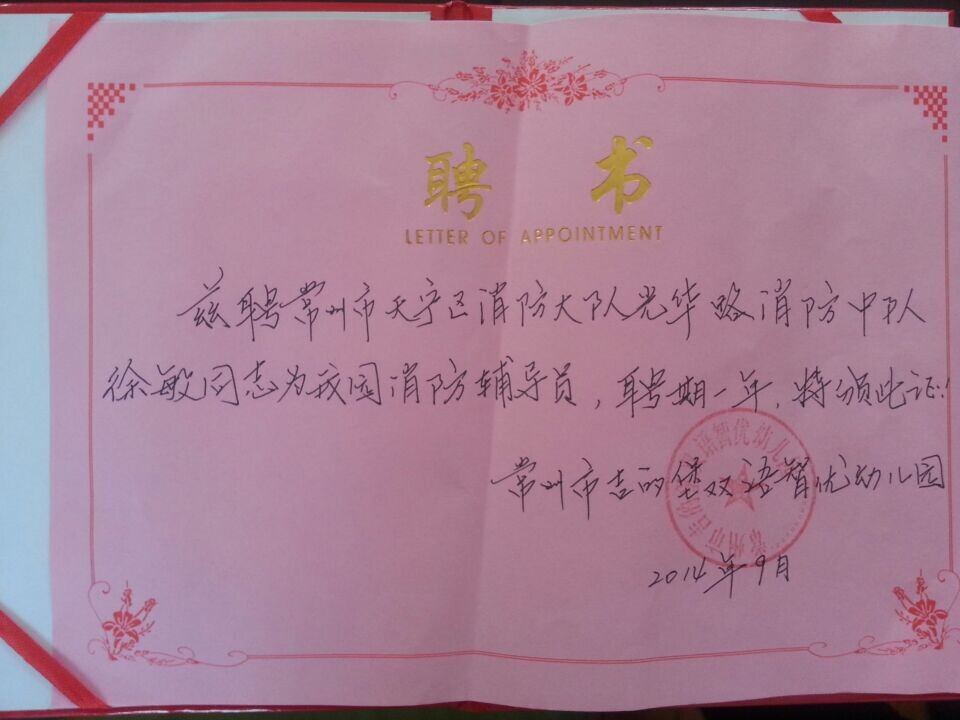 聘书
LETTER OF APPOINTMENT
兹聘常州市天宁区消防大队光华路消防中队
徐敏同志为我园消防辅导员，聘期一年，特颁此证！
常州市吉的堡双语智优幼儿园
2014年9月